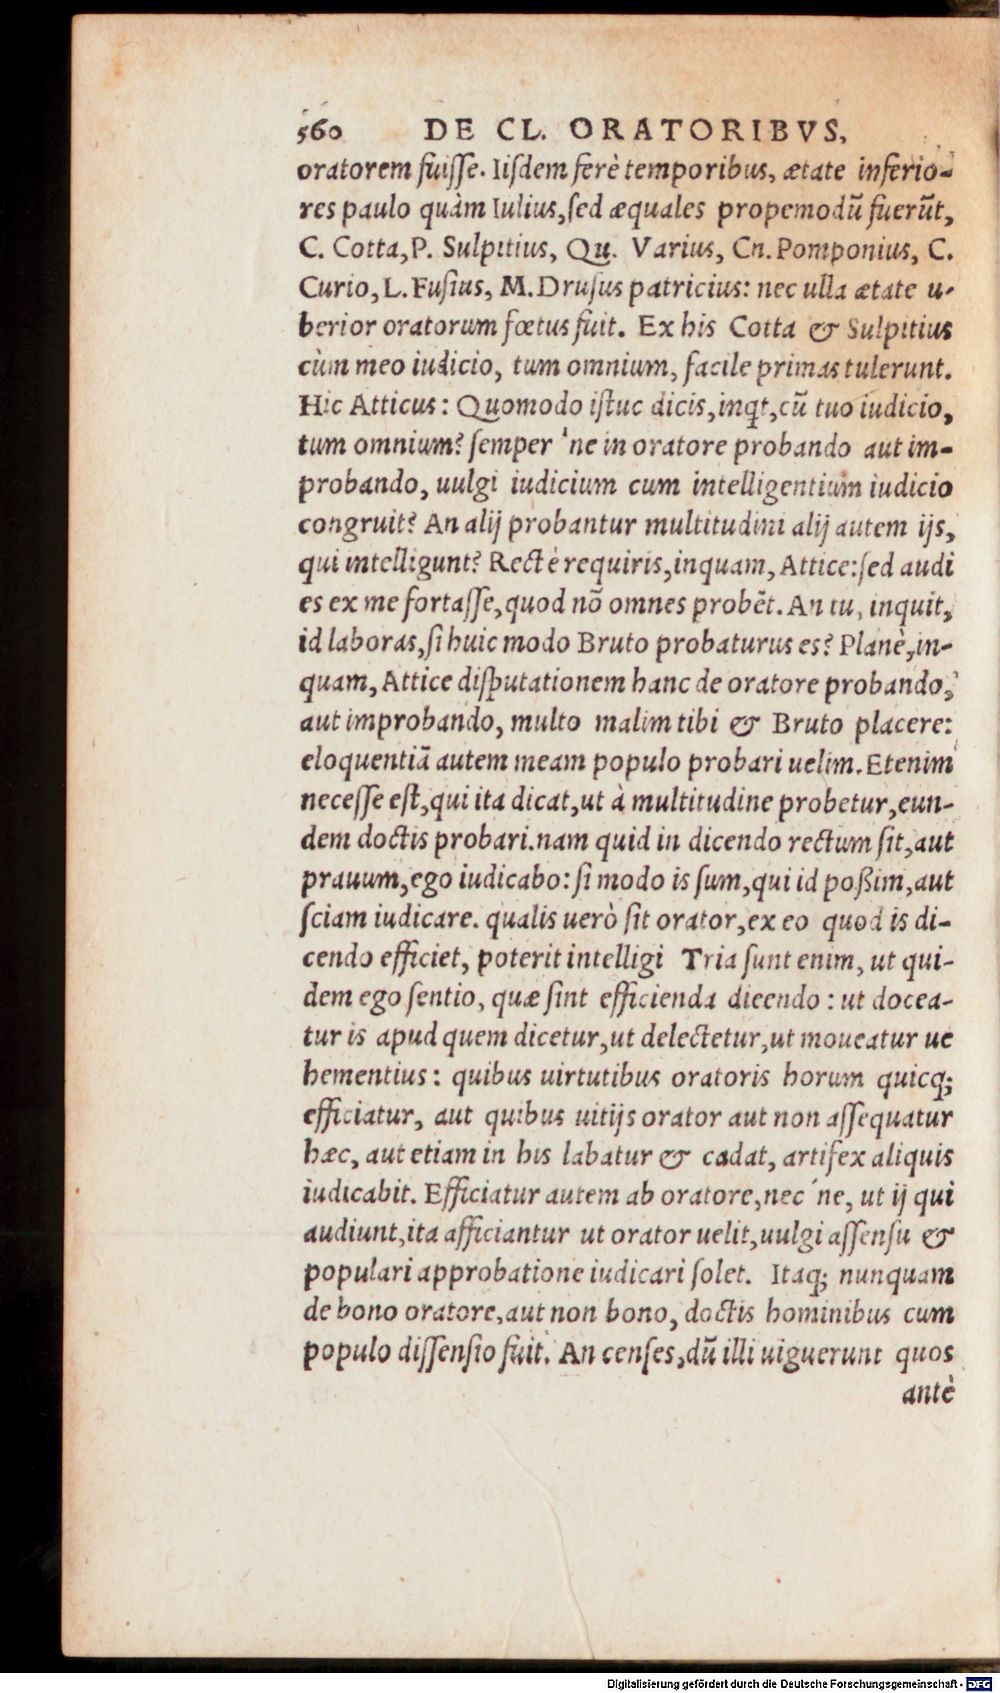 560 DE CL. ORATORIBVS,
oratorem fuiſſe. Iiſdem ferè temporibus, ætate inferio-
res paulo quàm Iulius, ſed æquales propemodũ fuerũt,
C. Cotta, P. Sulpitius, Qu. Varius, Cn. Pomponius, C.
Curio, L. Fuſius, M. Druſus patricius: nec ulla ætate u-
berior oratorum fœtus fuit. Ex his Cotta & Sulpitius
cùm meo iudicio, tum omnium, facile primas tulerunt.
Hic Atticus: Quomodo iſtuc dicis, inqt, cũ tuo iudicio,
tum omnium? ſemper 'ne in oratore probando aut im-
probando, uulgi iudicium cum intelligentium iudicio
congruit? An alij probantur multitudini alij autem ijs,
qui intelligunt? Rectè requiris, inquam, Attice: ſed audi
es ex me fortaſſe, quod nõ omnes probẽt. An tu, inquit,
id laboras, ſi huic modo Bruto probaturus es? Planè, in-
quam, Attice diſputationem hanc de oratore probando,
aut improbando, multo malim tibi & Bruto placere:
eloquentiã autem meam populo probari uelim. Etenim
neceſſe eſt, qui ita dicat, ut à multitudine probetur, eun-
dem doctis probari. nam quid in dicendo rectum ſit, aut
prauum, ego iudicabo: ſi modo is ſum, qui id poßim, aut
ſciam iudicare. qualis uerò ſit orator, ex eo quod is di-
cendo efficiet, poterit intelligi Tria ſunt enim, ut qui-
dem ego ſentio, quæ ſint efficienda dicendo: ut docea-
tur is apud quem dicetur, ut delectetur, ut moueatur ue
hementius: quibus uirtutibus oratoris horum quicq;
efficiatur, aut quibus uitijs orator aut non aſſequatur
hæc, aut etiam in his labatur & cadat, artifex aliquis
iudicabit. Efficiatur autem ab oratore, nec 'ne, ut ij qui
audiunt, ita afficiantur ut orator uelit, uulgi aſſenſu &
populari approbatione iudicari ſolet. Itaq; nunquam
de bono oratore, aut non bono, doctis hominibus cum
populo diſſenſio fuit. An cenſes, dũ illi uiguerunt quos
antè
Digitalisierung gefördert durch die Deutsche Forschungsgemeinschaft - DFG